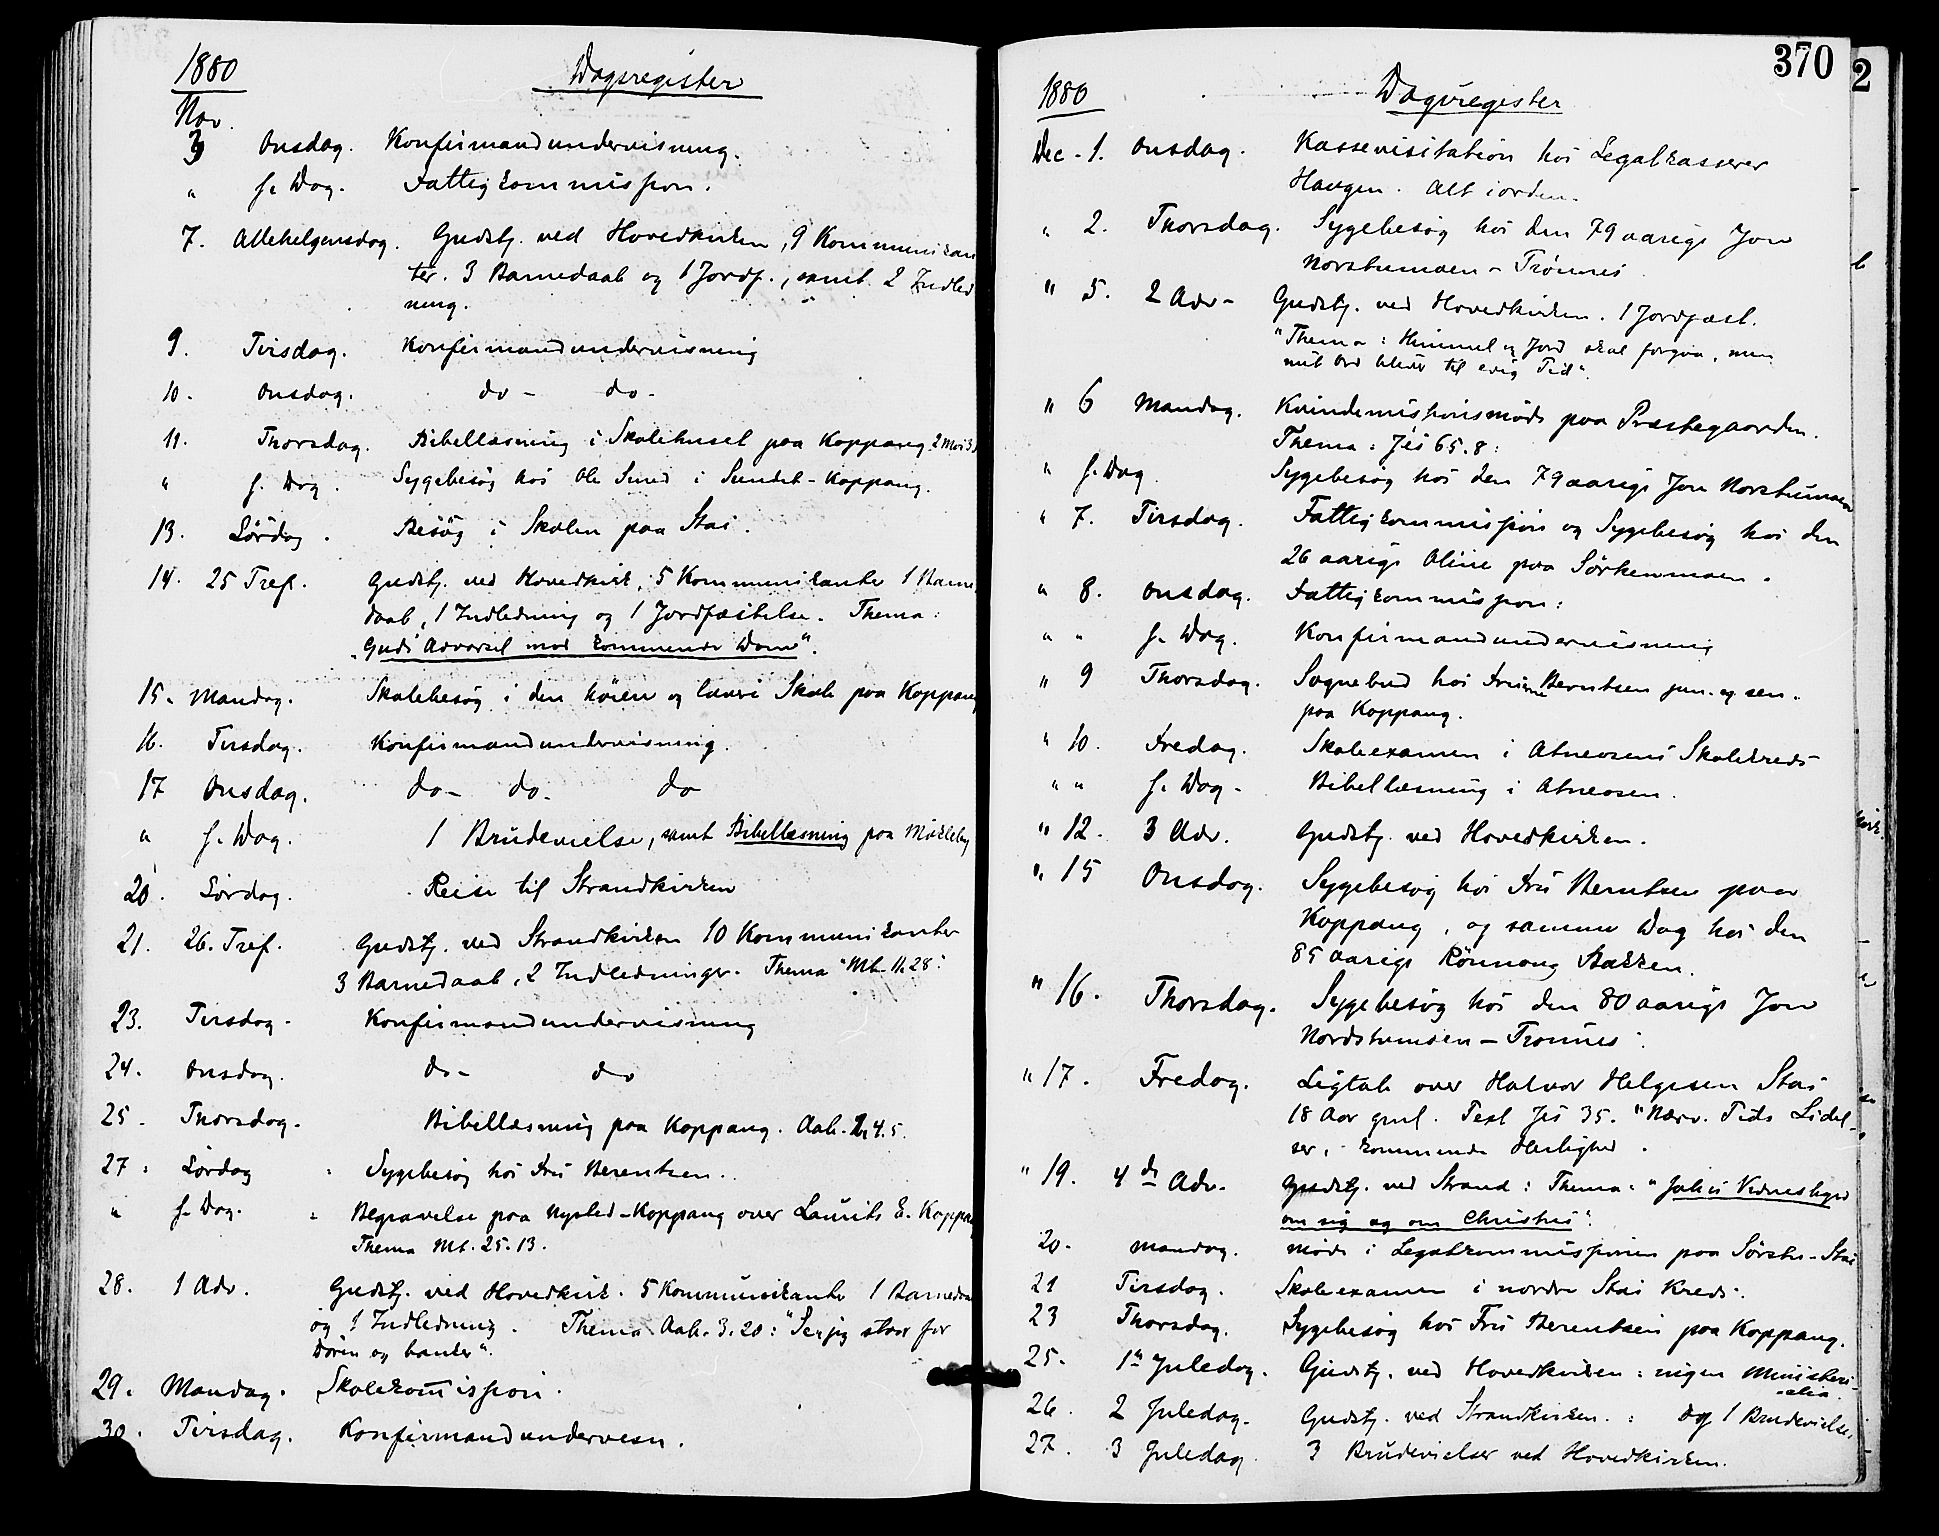 1880 Dagsregister
Nov.
3 Onsdag. Konfirmandundervisning.
" s. Dag. Fattigkommission.
7. Allehelgensdag. Gudstj. ved Hovedkirken, 9 Kommunikan
ter. 3 Barnedaab og 1 Jordf., samt 2 Indled
ning.
9. Tirsdag. Konfirmandundervisning
10. Onsdag. do - do -
11. Thorsdag. Bibellæsning i Skolehuset paa Koppang 2 Mos 3
" s. Dag. Sygebesøg hos Ole Smed i Sundet - Koppang.
13. Lördag. Besög i Skolen paa Stai.
14. 25 Tref. Gudstj. ved Hovedkirk. 5 Kommunikanter 1 Barne
daab, 1 Indledning og 1 Jordfæstelse. Thema:
"Guds Advarsel mod kommende Dom".
15. Mandag. Skolebesøg i den höiere og lavere Skole paa Koppang
16. Tirsdag. Konfirmandundervisning.
17 Onsdag. do - do - do
" s. Dag. 1 Brudevielse, samt Bibellæsning paa Mökleby
20. Lördag. Reise til Strandkirken
21. 26. Tref. Gudstj. ved Strandkirken 10 Kommunikanter
3 Barnedaab, 2 Indledninger. Thema "Mt. 11.28".
23. Tirsdag. Konfirmandundervisning
24. Onsdag. do - do
25. Thorsdag. Bibellæsning paa Koppang. Aab. 2.4.5.
27. Lördag Sygebesøg hos Fru Berentsen.
" s. Dag. Begravelse paa Nysted - Koppang over Laurits E. Koppang
Thema Mt. 25.13.
28. 1 Adv. Gudstj. ved Hovedkirk. 5 Kommunikanter 1 Barnedaab
og 1 Indledning. Thema Aab. 3.20: "Se jeg staar for
Dören og banker".
29. Mandag. Skolekom̅ission.
30. Tirsdag. Konfirmandundervisn.
370
2
1880 Dagsregister
Dec - 1. Onsdag. Kassevisitation hos Legatkasserer
Haugen. Alt iorden.
" 2. Thorsdag. Sygebesög hos den 79 aarige Jon
Norstumoen - Trönnes.
" 5. 2 Adv - Gudstj. ved Hovedkirken. 1 Jordfæst.
"Thema: Himmel og Jord skal forgaa, men
mit Ord bliver til evig Tid".
" 6 Mandag. Kvindemissionsmöde paa Præstegaarden.
Thema: Jes 65.8:
" s. Dag Sygebesög hos den 79 aarige Jon Norstumoen
" 7. Tirsdag. Fattigkommission og Sygebesög hos den
26 aarige Oline paa Sörkenmoen.
" 8. Onsdag. Fattigkommission:
" " s. Dag. Konfirmandundervisning
" 9 Thorsdag. Sognebud hos Fruerne Berntsen jun. og sen.
paa Koppang.
" 10. Fredag. Skoleexamen i Atneosens Skolekreds
" " s. Dag - Bibellæsning i Atneosen.
" 12. 3 Adv. Gudstj. ved Hovedkirken.
" 15 Onsdag. Sygebesög hos Fru Berntsen paa
Koppang, og samme Dag hos den
85 aarige Rönnaug Bakken.
" 16. Thorsdag. Sygebesög hos den 80 aarige Jon
Nordstumoen - Trönnes.
" 17. Fredag. Ligtale over Halvor Helgesen Stai
18 Aar gml. Text Jes 35. "Nærv. Tids Lidel-
ser, - kommende Herlighed.
" 19. 4de Adv. Gudstj. ved Strand: Thema: "Johs Vidnesbyrd
om sig og om Christus".
20. Mandag. Möde i Legatkommissionen paa Sörstu - Stai
21 Tirsdag. Skoleexamen i nordre Stai Kreds.
23 Thorsdag. Sygebesög hos Fru Berentsen paa Koppang.
25. 1ste Juledag. Gudstj. ved Hovedkirken: ingen Ministeri-
alia.
26. 2 Juledag. Gudstj. ved Strandkirken.: og 1 Brudevielse.
27. 3 Juledag 3 Brudevielser ved Hovedkirken.